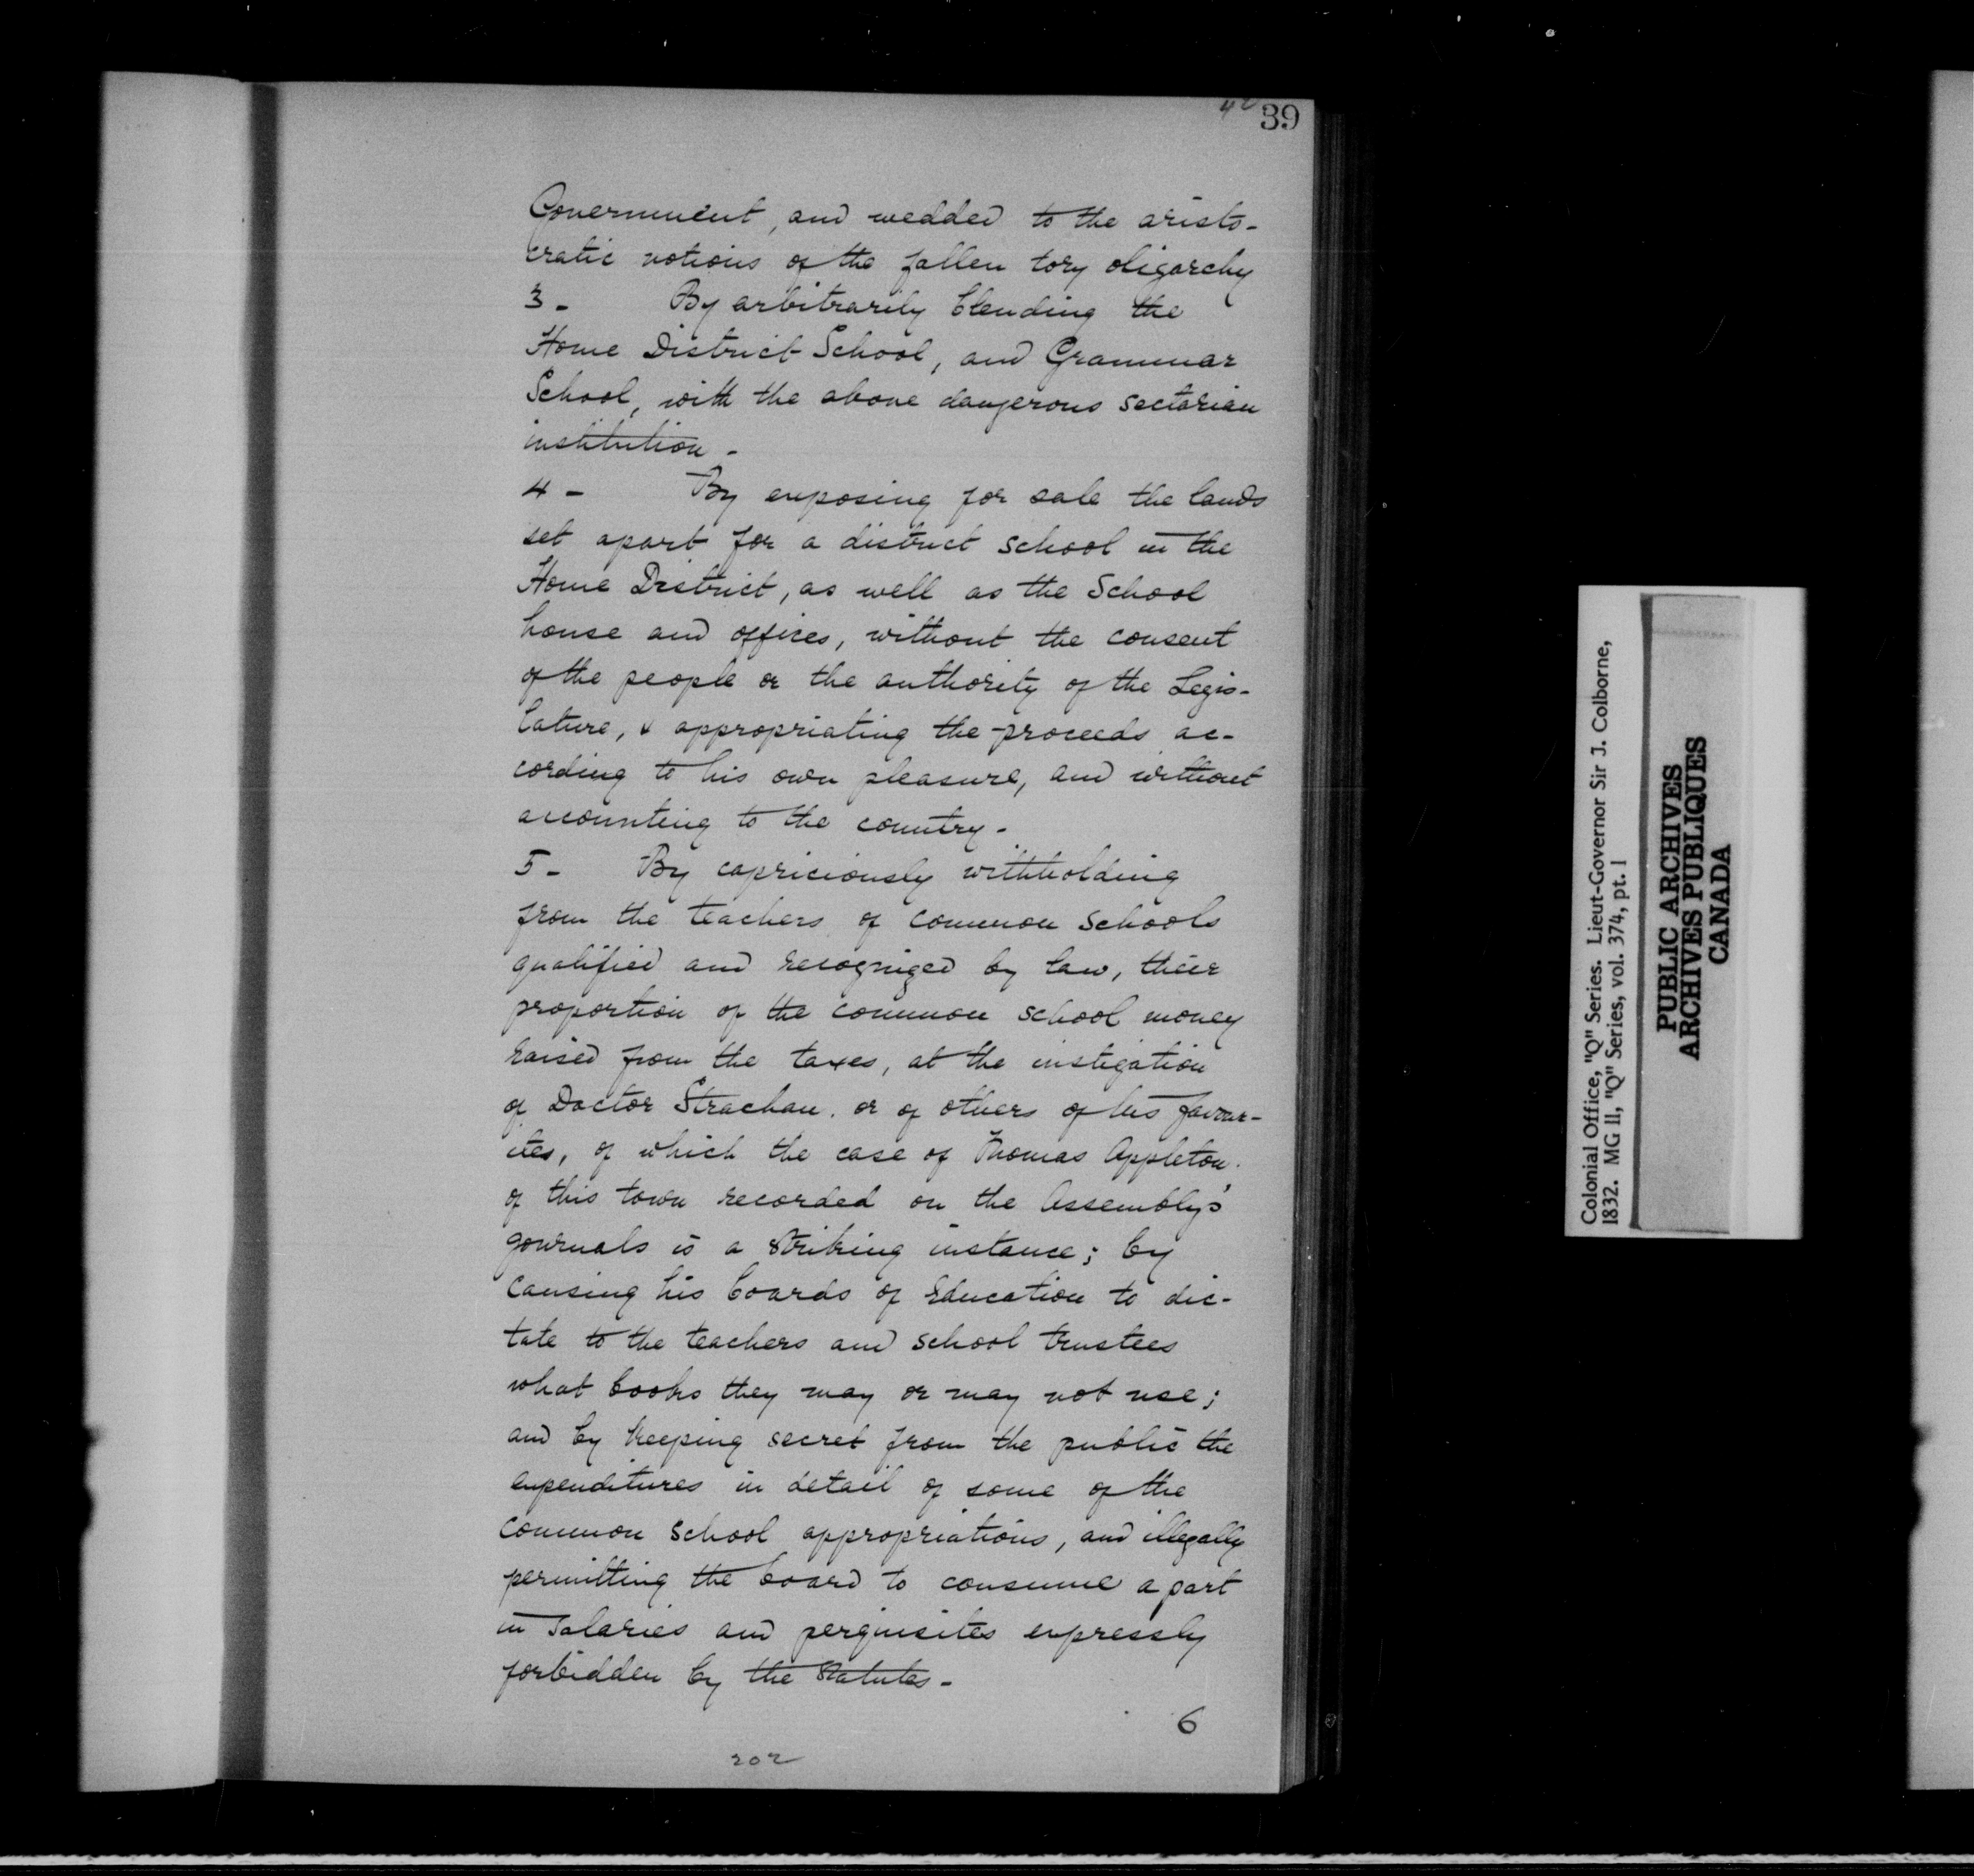 39
Government, and wedded to the aristo-
cratic notions of the fallen tory oligarchy
3- By arbitrarily blending the
Home District School, and Grammar
School, with the above dangerous sectarian
institution -
4- By exposing for sale the lands
set apart for a district school in the
Home District, as well as the School
house and offices, without the consent
of the people or the authority of the Legis-
lature, & appropriating the proceeds ac-
cording to his own pleasure, and without
accounting to the country -
5- By capriciously withholding
from the teachers of common schools
qualified and recognized by law, their
proportion of the common school money
raised from the taxes, at the instigation
of Doctor Strachan. or of others of his favour-
ites, of which the case of Thomas Appleton.
of this town recorded on the Assembly's
journals is a striking instance; by
causing his boards of Education to dic-
tate to the teachers and school trustees
what books they may or may not use;
and by keeping secret from the public the
expenditures in detail of some of the
common school appropriations, and illegally
permitting the board to consume a part
in salaries and perquisites expressly
forbidden by the statutes -
6
202
Colonial Office, "Q" Series. Lieut-Governor Sir J. Colborne,
1832. MG 11, "Q" Series, vol. 374, pt. 1
PUBLIC ARCHIVES
ARCHIVES PUBLIQUES
CANADA